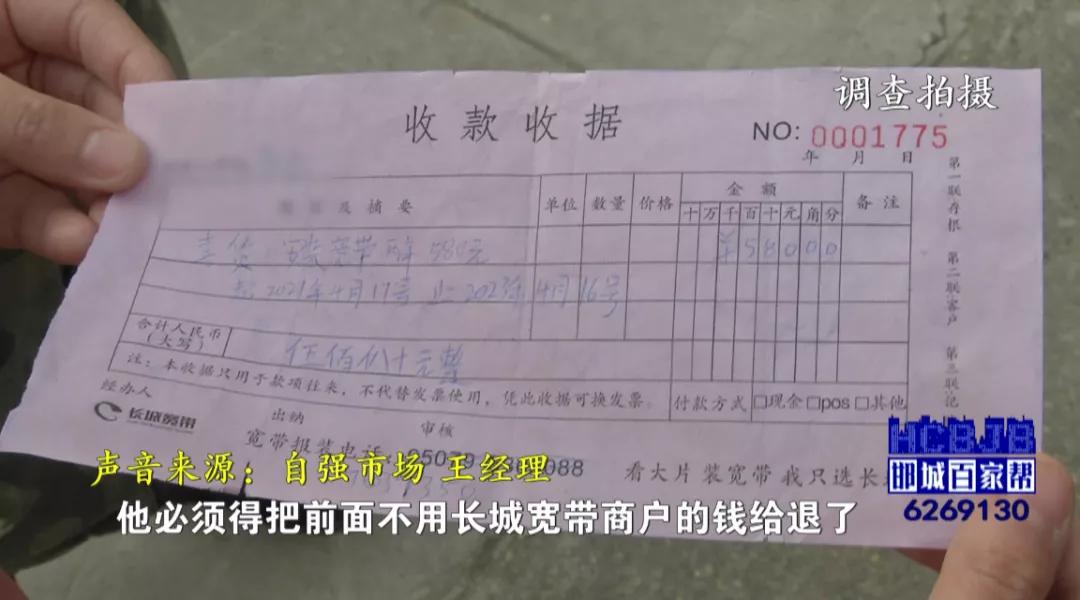 调查拍摄
收款收据
NO: 0001775
年 月 日
及摘要 单位 数量 价格 金额 备注
十 万 千 百 十 元 角 分
宽带 两年 580元 ¥58000
起 2021年4月17号 止 2023年4月16号
合计人民币
(大写)
伍佰八十元整
注:本收据只用于款项往来,不代替发票使用,凭此收据可换发票。
付款方式 □现金 □pos □其他
经办人 出纳 审核
长城宽带
宽带报装电话 088
看大片 装宽带 我只选长
第一联存根 第二联客户 第三联记
声音来源:自强市场 王经理
他必须得把前面不用长城宽带商户的钱给退了
HCBJB
邯城百家帮
6269130